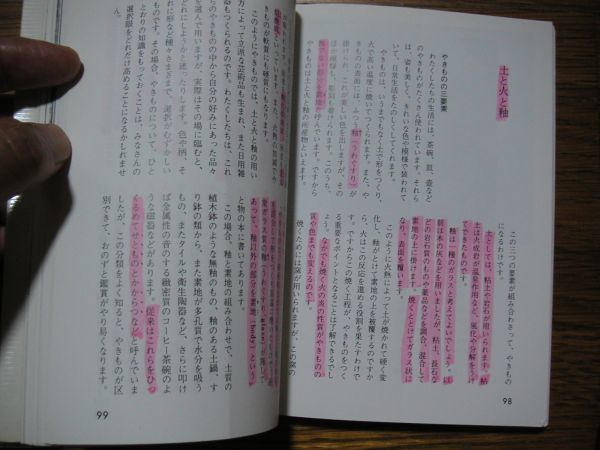 土と火と釉
やきものの三要素
わたくしたちの生活には、茶碗、皿、壺など
のやきものがたくさん使われています。それら
は、姿も美しく、きれいな色や模様で装われて
いて、日常生活をたのしくしてくれます。
やきものは、いうまでもなく土で形をつくり、
火で高い温度に焼いてつくられます。また、や
きものの表面には、ふつう釉（うわぐすり）が
掛けられ、これが美しい色を出しますが、その
やきものは土と火と釉の所産物といえます。
この三つの要素が組み合わさって、やきもの
になるわけです。
土としては、粘土や岩石が用いられます。粘
土は火成岩が温泉作用など、風化や分解をうけ
てできたものです。
釉は一種のガラスと考えてよいでしょう。以
前は木の灰などを用いましたが、粘土、長石な
どの岩石質のものや薬品などを調合、混合して
素地の上に掛けます。焼くととけてガラス状に
なり、表面を覆います。
このように火熱によって土が焼かれて硬く変
化し、釉がとけて素地の上を被覆するのですか
ら、火はこの反応を進める役割を果たすわけで
す。ですからこの焼く工程が、やきものをつく
る重要なポイントとなることは了解できるでし
ょう。なかでも焼く火の炎の性質がやきものの
質や色までも変えるのです。
焼くためには窯が用いられますが、この窯の
98
このようにやきものでは、土と火と釉の用い
方によって立派な芸術品も生まれ、また日用雑
器もつくられるのです。わたくしたちは、これ
らのやきものの中から自分の好みにあった品々
を選んで用いますが、実際はその場に臨むと、
どれにしようかと迷ったりします。色や柄、そ
れに形など種々さまざまで、選択がむずかしい
ものです。その場合、やきものについて、ひと
とおりの知識をもっておくことは、みなさんの
選択眼をどれだけ高めることになるかしれませ
ん。
あって、釉以外の部分を素地（body）という」
と物の本に書いてあります。
この場合、釉と素地の組み合わせで、土質の
植木鉢のような無釉のもの、釉のある土鍋、す
り鉢の類から、また素地が多孔質で水分を吸う
もの、またタイルや衛生陶器など、さらに叩け
ば金属性の音のする緻密質のコーヒー茶碗のよ
うな磁器などがあります。従来はこれらをひっ
くるめてせとものとかからつなどと呼んでいま
したが、この分類をよく知ると、やきものが区
別できて、おのずと鑑賞がやり易くなります。
99